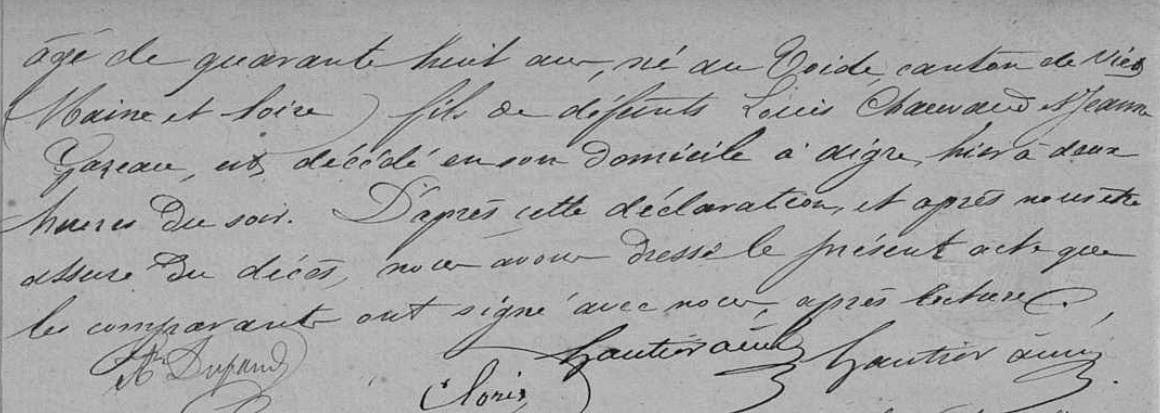 âgé de quarante huit ans, né au Voide, canton de
(Maine et Loire) fils de défunts Louis Chauvaud et Jeanne
Gazeau, est décédé en son domicile à Aigre, hier à deux
heures du soir. D'après cette déclaration, et après nous être
assuré du décès, nous avons dressé le présent acte que
les comparants ont signé avec nous, après lecture.
Gautier aîné Gautier aimé